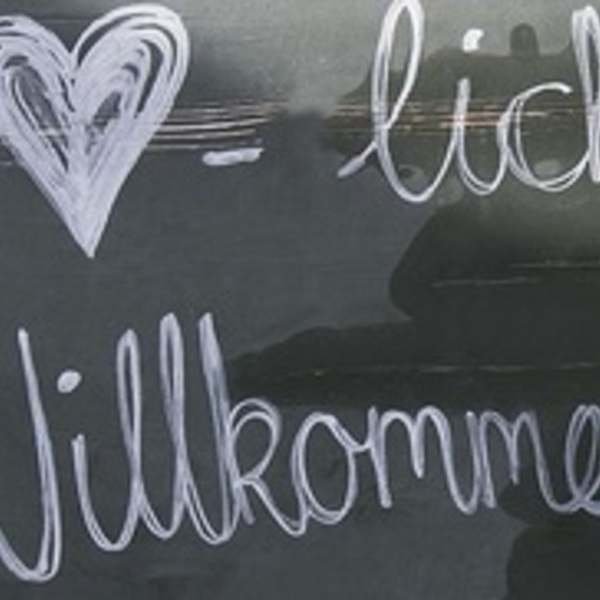 ♥ - lich
Willkomme